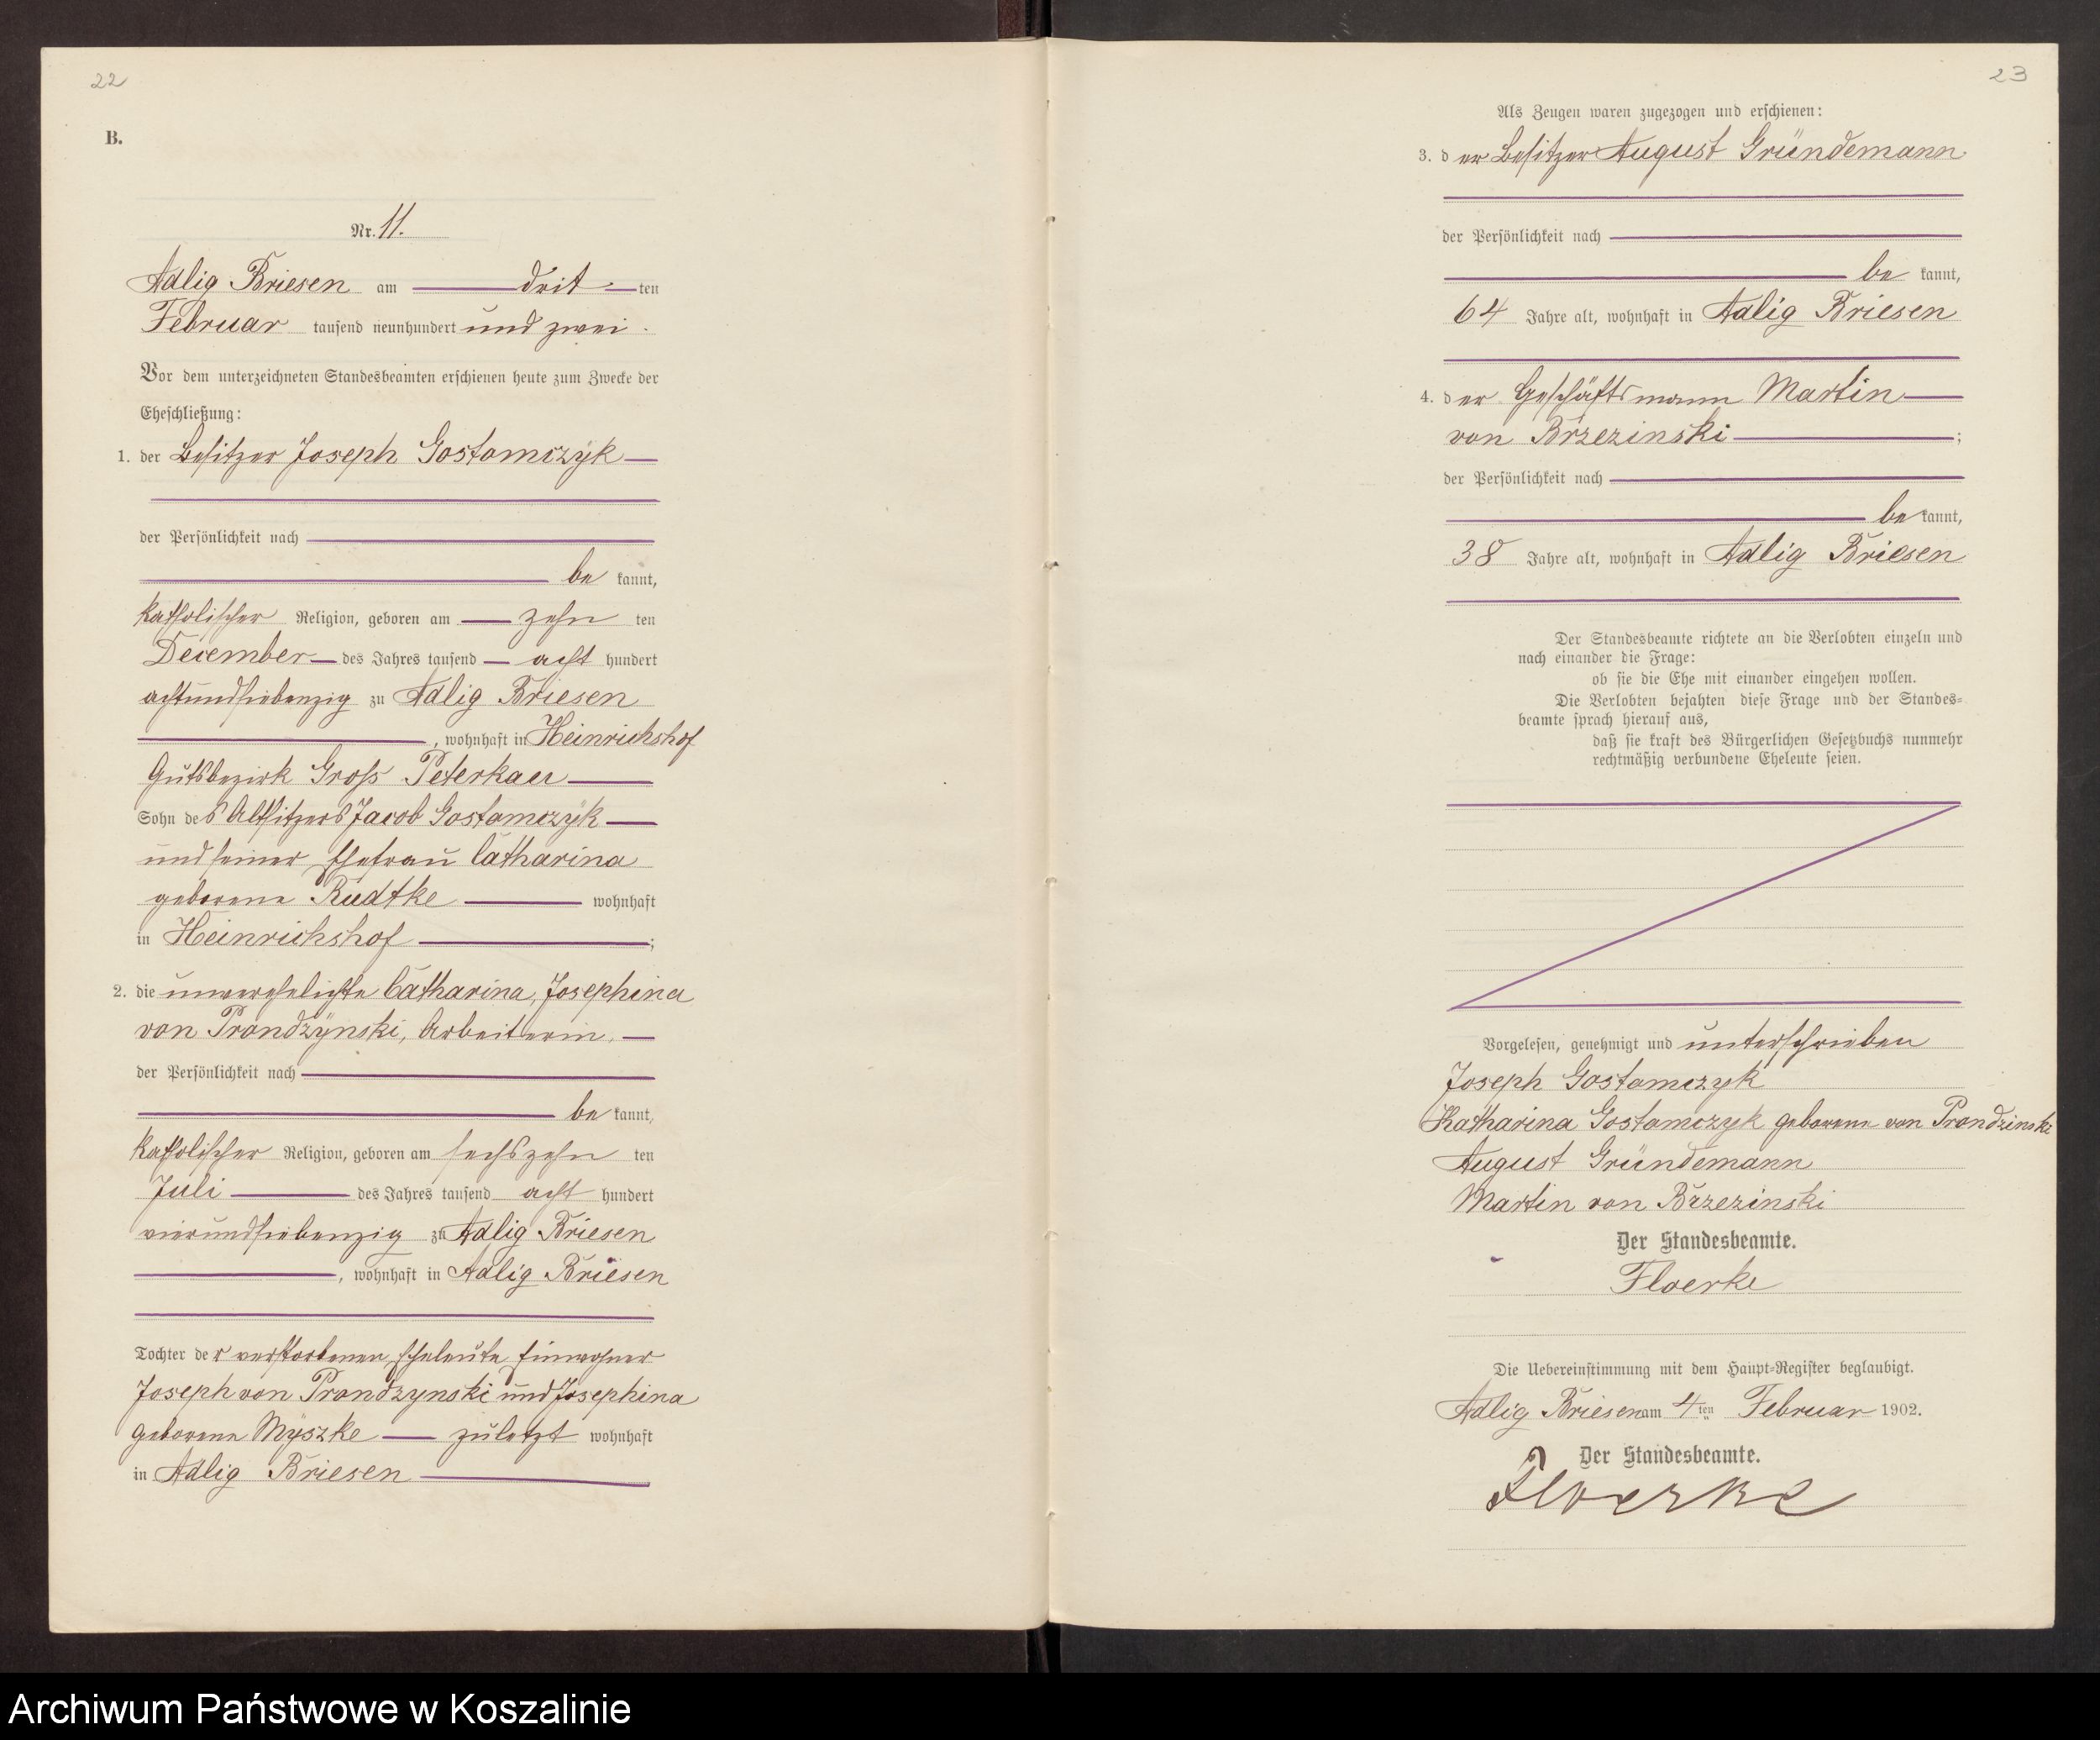 22
B.
Nr. 11.
Adlig Briesen am drit ten
Februar tausend neunhundert und zwei.
Vor dem unterzeichneten Standesbeamten erschienen heute zum Zwecke der
Eheschließung:
1. der Besitzer Joseph Gostomczyk
der Persönlichkeit nach
be kannt,
katholischer Religion, geboren am zehn ten
December des Jahres tausend acht hundert
achtundsiebenzig zu Adlig Briesen
, wohnhaft in Heinrichshof
Gutsbezirk Gross Peterkau
Sohn des Altsitzers Jacob Gostomczyk
und seiner Ehefrau Catharina
geborene Rudtke wohnhaft
in Heinrichshof ;
2. die unverehelichte Catharina, Josephina
von Prondzynski, Arbeiterin,
der Persönlichkeit nach
be kannt,
katholischer Religion, geboren am sechszehn ten
Juli des Jahres tausend acht hundert
vierundsiebenzig zu Adlig Briesen
, wohnhaft in Adlig Briesen
Tochter der verstorbenen Eheleute Einwohner
Joseph von Prondzynski und Josephina
geborene Myszke zuletzt wohnhaft
in Adlig Briesen
23
Als Zeugen waren zugezogen und erschienen:
3. der Besitzer August Gründemann
der Persönlichkeit nach
be kannt,
64 Jahre alt, wohnhaft in Adlig Briesen
4. der Geschäftsmann Martin
von Brzezinski ;
der Persönlichkeit nach
be kannt,
38 Jahre alt, wohnhaft in Adlig Briesen
Der Standesbeamte richtete an die Verlobten einzeln und
nach einander die Frage:
ob sie die Ehe mit einander eingehen wollen.
Die Verlobten bejahten diese Frage und der Standes-
beamte sprach hierauf aus,
daß sie kraft des Bürgerlichen Gesetzbuchs nunmehr
rechtmäßig verbundene Eheleute seien.
Vorgelesen, genehmigt und unterschrieben
Joseph Gostomczyk
Katharina Gostomczyk geborene von Prondzinski
August Gründemann
Martin von Brzezinski
Der Standesbeamte.
Floerke
Die Uebereinstimmung mit dem Haupt-Register beglaubigt.
Adlig Briesen am 4ten Februar 1902.
Der Standesbeamte.
Floerke
Archiwum Państwowe w Koszalinie